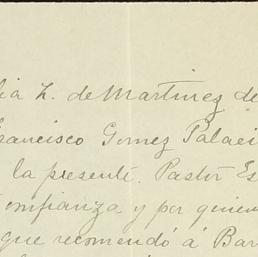 lia Z. de Martinez de
Francisco Gomez Palaci
la presente. Pastor Es
confianza y por quien
que recomendó á Bar